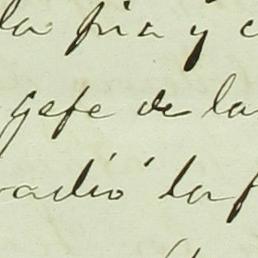 la fria y c
gefe de la
radió la f